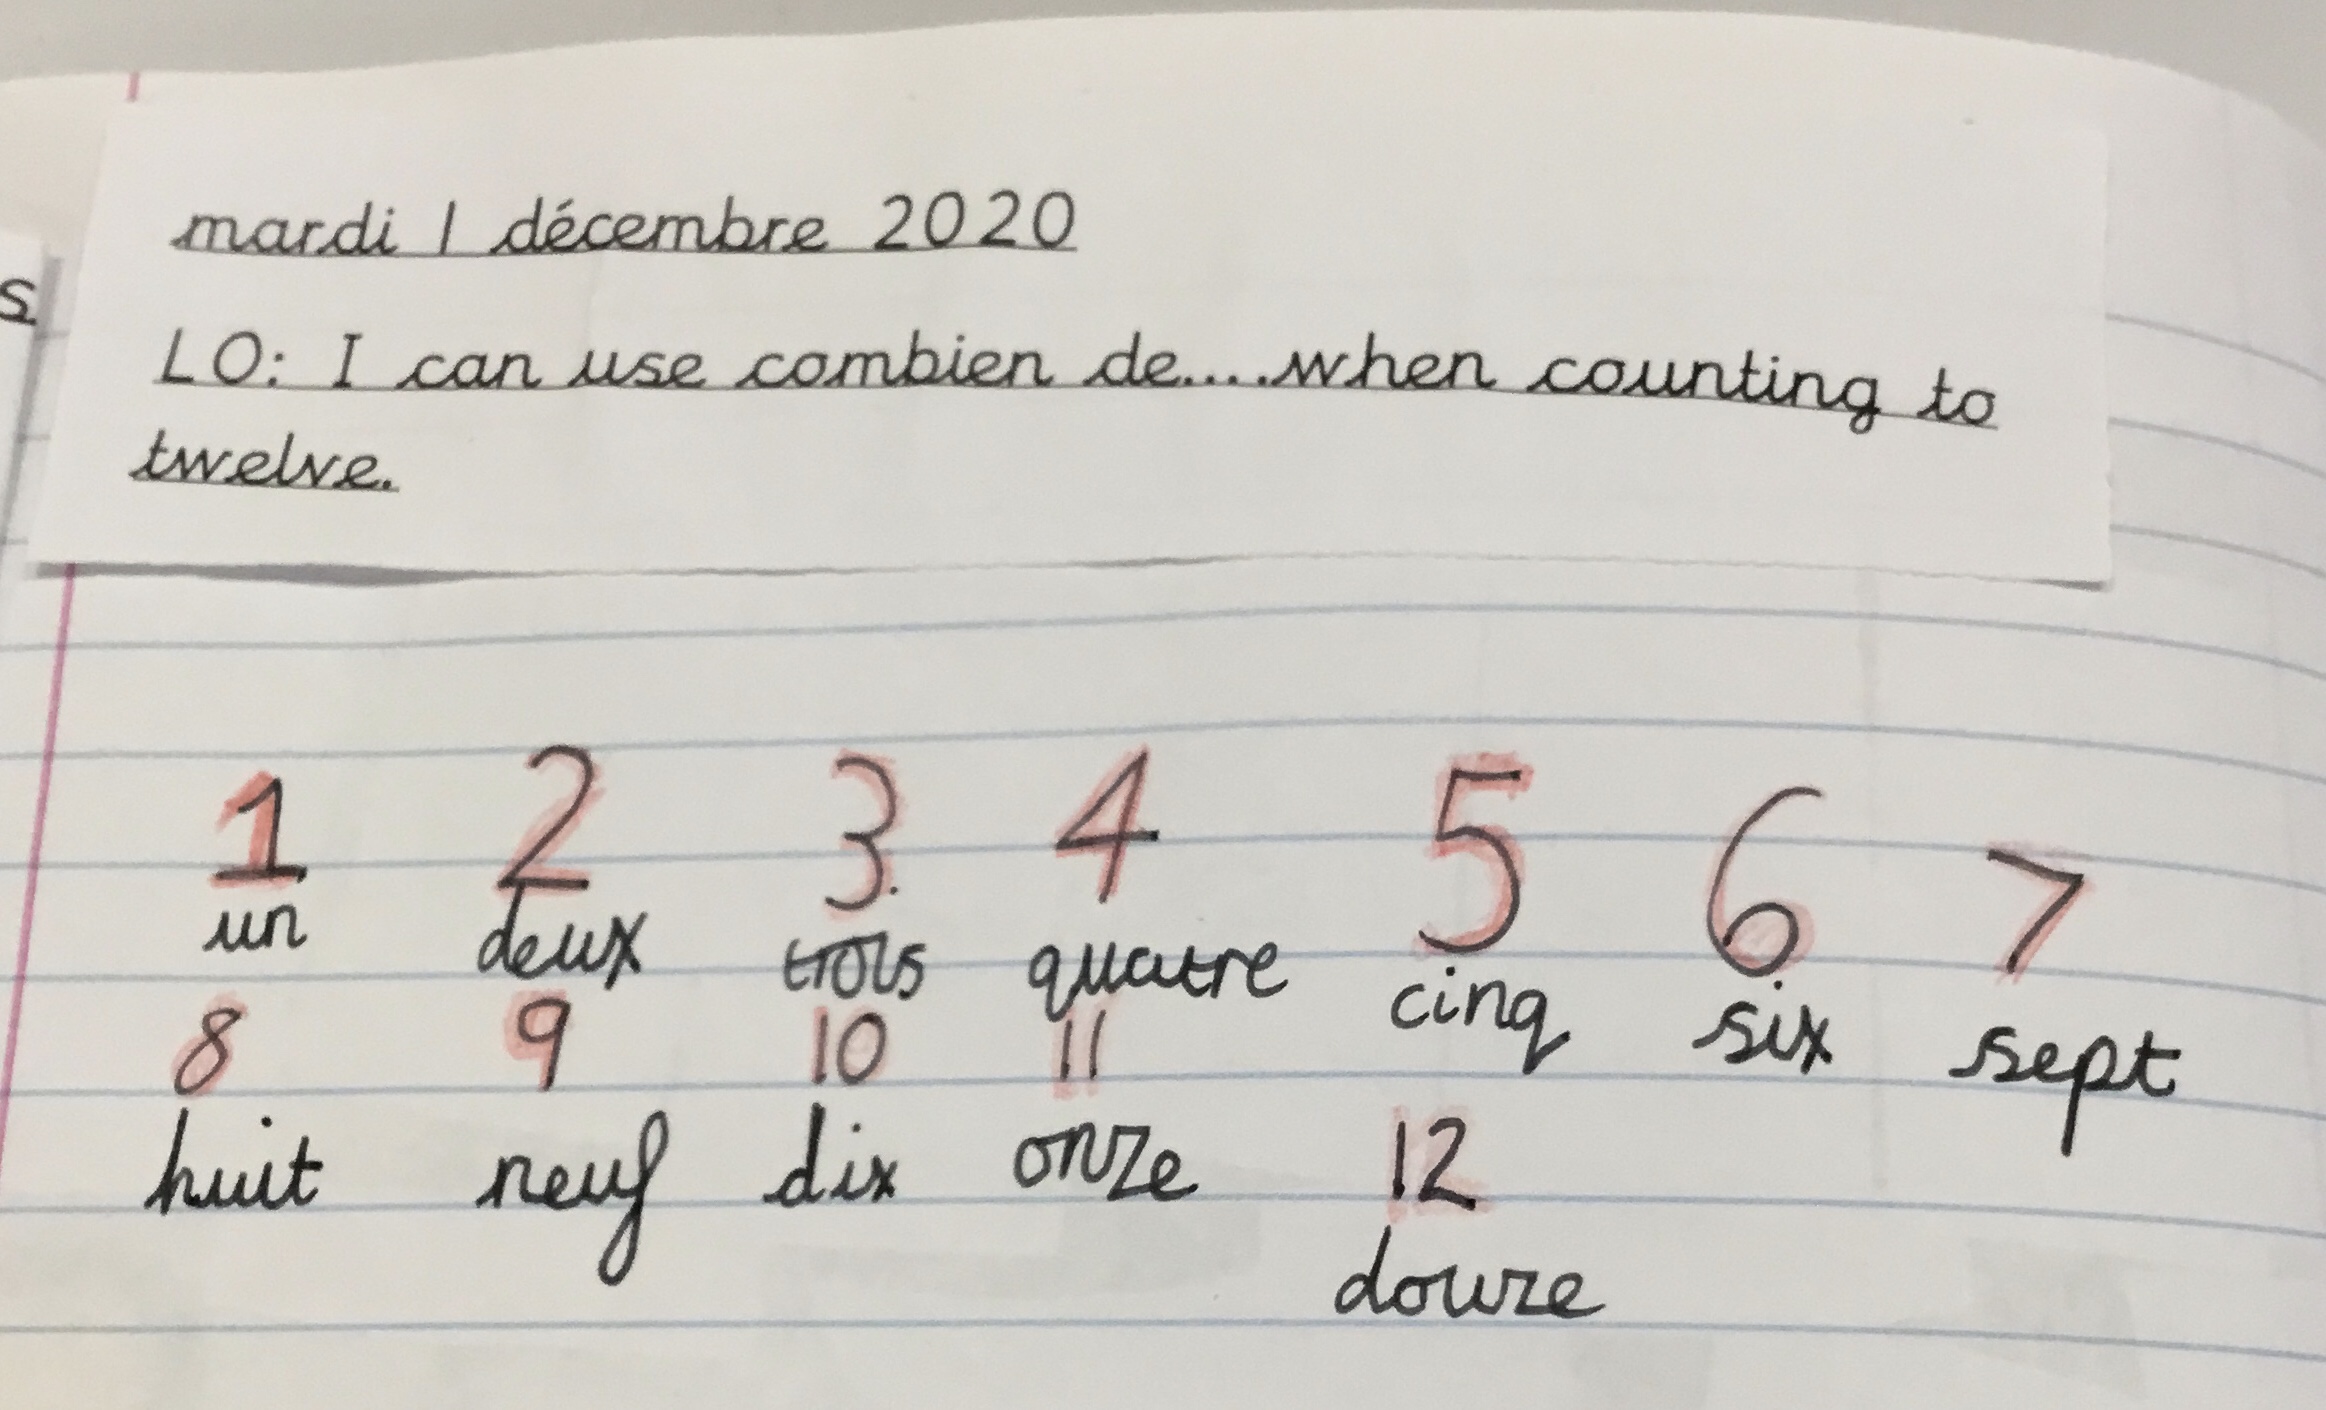 mardi 1 décembre 2020
s
LO: I can use combien de....when counting to
twelve.
1 2 3 4 5 6 7
un deux trois quatre cinq six sept
8 9 10 11
huit neuf dix onze 12
douze